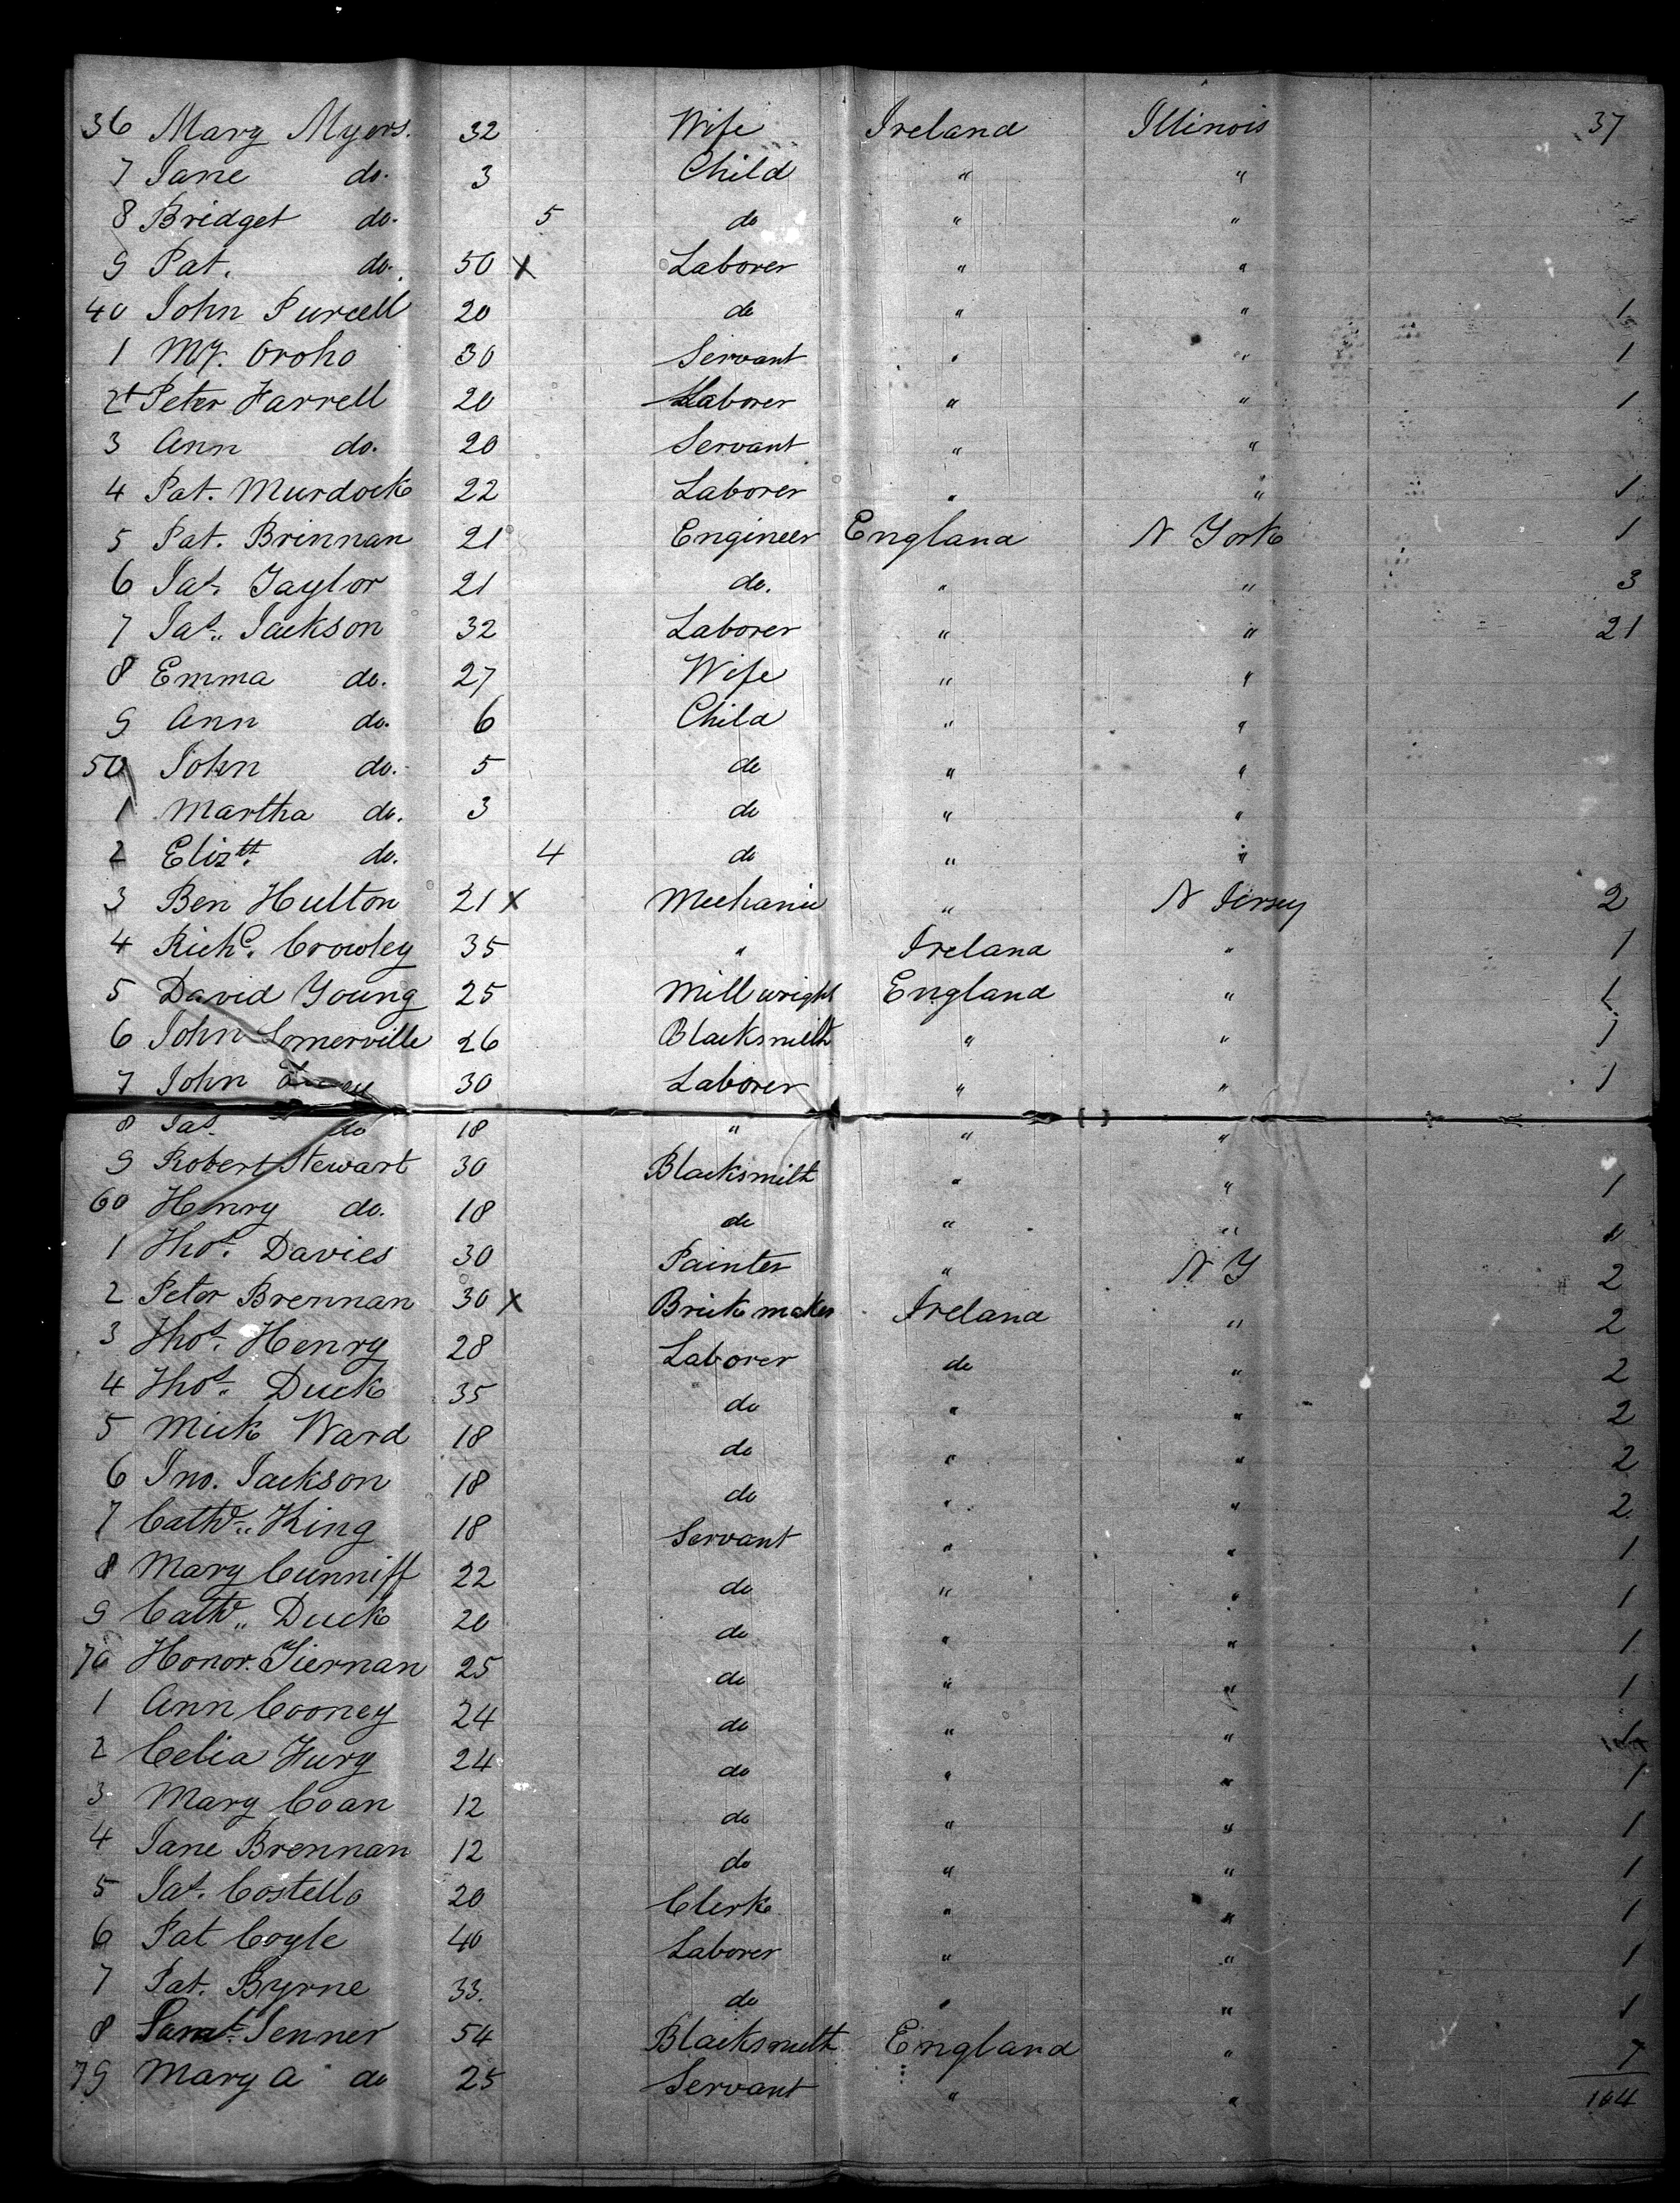 36 Mary Myers. 32 Wife Ireland Illinois 37
7 Jane do. 3 Child " "
8 Bridget do. 5 do " "
9 Pat. do. 50 X Laborer " "
40 John Purcell 20 do " " 1
1 My. Oroho 30 Servant " " 1
2 Peter Farrell 20 Laborer " " 1
3 Ann do. 20 Servant " "
4 Pat. Murdock 22 Laborer " " 1
5 Pat. Brinnan 21 Engineer England N York 1
6 Jas. Taylor 21 do. " " 3
7 Jas. Jackson 32 Laborer " " 21
8 Emma do. 27 Wife " "
9 Ann do. 6 Child " "
50 John do. 5 do " "
1 Martha do. 3 do " "
2 Elizth. do. 4 do " "
3 Ben Hulton 21 X Mechanic " N Jersey 2
4 Richd. Crowley 35 " Ireland " 1
5 David Young 25 Mill wright England " 1
6 John Somerville 26 Blacksmith " " 1
7 John 30 Laborer " " 1
8 Jas. do 18 " " "
9 Robert Stewart 30 Blacksmith " " 1
60 Henry do. 18 do " "
1 Thos. Davies 30 Painter " N Y 2
2 Peter Brennan 30 X Brick maker Ireland " 2
3 Thos. Henry 28 Laborer do " 2
4 Thos. Duck 35 do " " 2
5 Mick Ward 18 do " " 2
6 Jno. Jackson 18 do " " 2
7 Cathe. King 18 Servant " " 1
8 Mary Cunniff 22 do " " 1
9 Cathe. Duck 20 do " " 1
70 Honor. Tiernan 25 do " " 1
1 Ann Cooney 24 do " "
2 Celia Fury 24 do " " 1
3 Mary Coan 12 do " " 1
4 Jane Brennan 12 do " " 1
5 Jas. Costello 20 Clerk " " 1
6 Pat Coyle 40 Laborer " " 1
7 Pat. Byrne 33. do " " 1
8 Saml. Jenner 54 Blacksmith England " 7
79 Mary A do 25 Servant " "
104